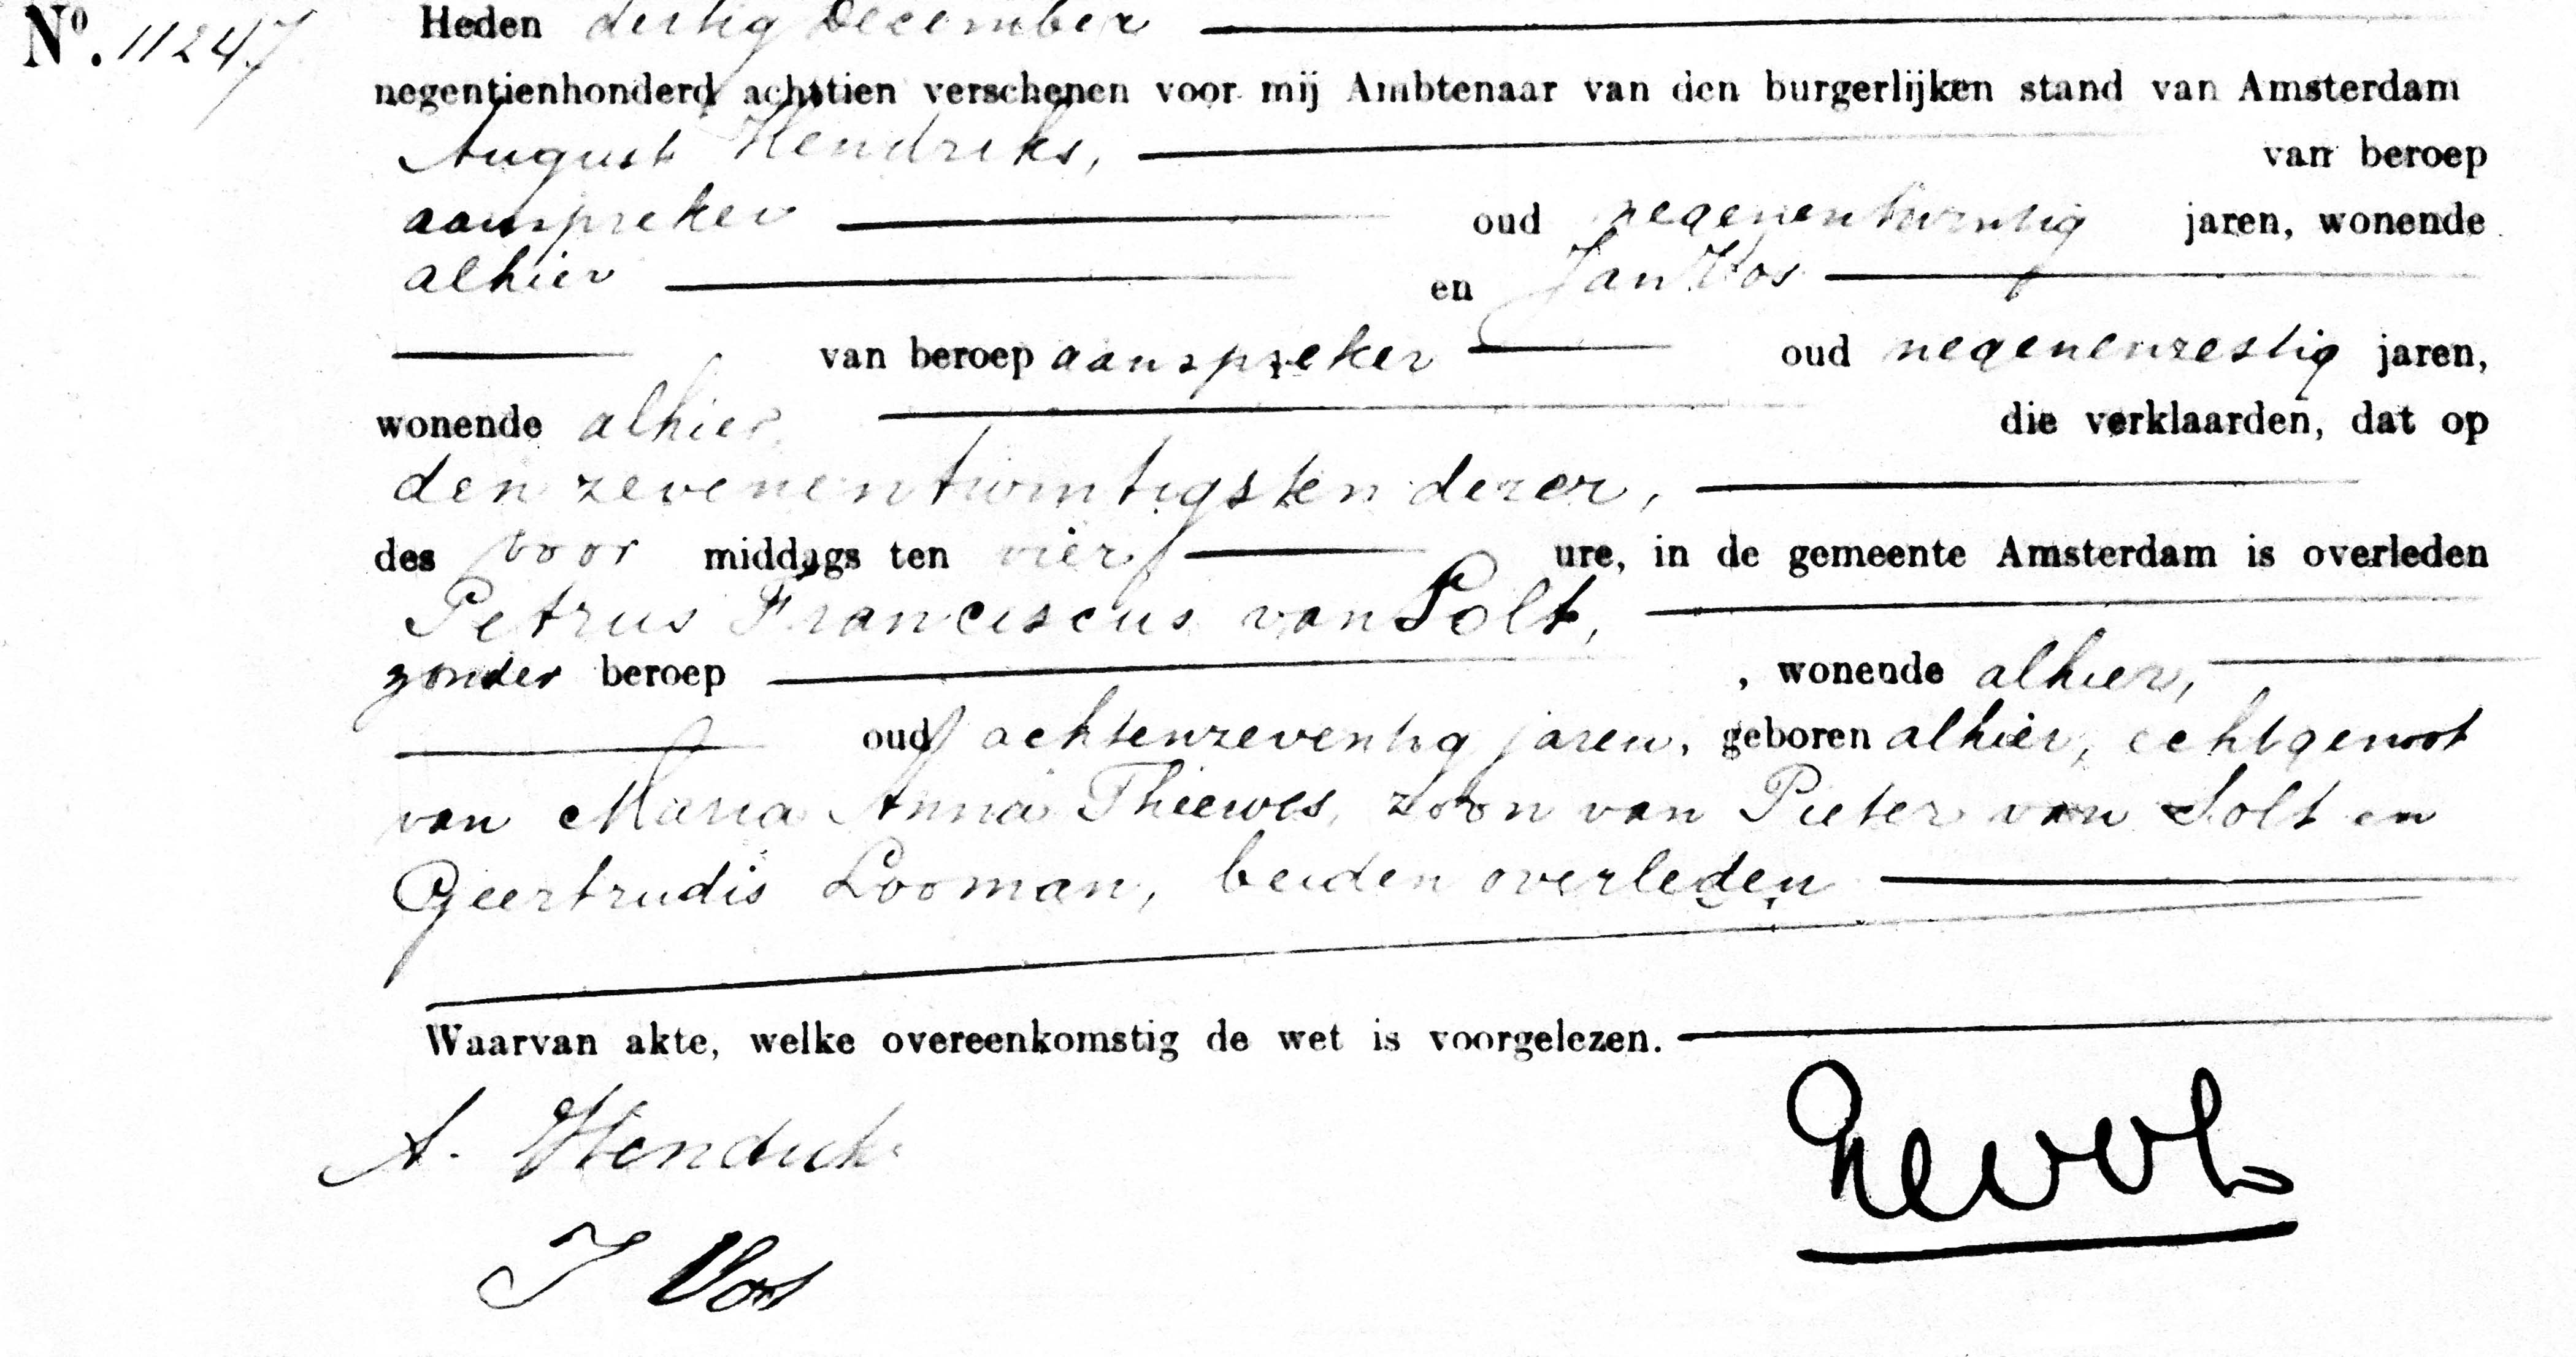 No. 11247
Heden dertig December
negentienhonderd achttien verschenen voor mij Ambtenaar van den burgerlijken stand van Amsterdam
August Hendriks, van beroep
aanspreker oud negenentwintig jaren, wonende
alhier en Jan Vos
van beroep aanspreker oud negenenzestig jaren,
wonende alhier die verklaarden, dat op
den zevenentwintigsten dezer,
des voor middags ten vier ure, in de gemeente Amsterdam is overleden
Petrus Franciscus van Solt,
zonder beroep , wonende alhier,
oud achtenzeventig jaren, geboren alhier, echtgenoot
van Maria Anna Thiewes, zoon van Pieter van Solt en
Geertrudis Looman, beiden overleden
Waarvan akte, welke overeenkomstig de wet is voorgelezen.
A. Hendriks
J Vos